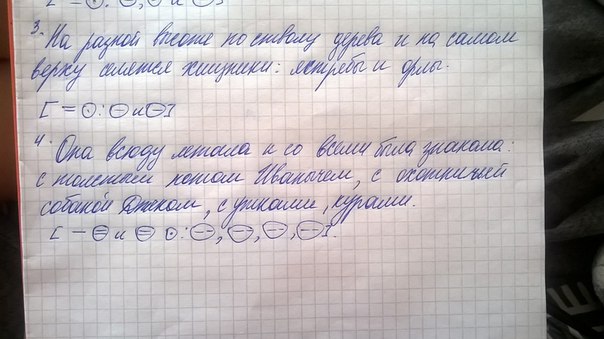 3. На разной высоте по стволу дерева и на самом
верху селятся хищники: ястребы и орлы.
[ = ⊙: ⊖ и ⊖ ]
4. Она всюду летала и со всеми была знакома:
с толстым котом Иванычем, с охотничьей
собакой Джеком, с утками, курами.
[ – ⊜ и ⊜ ⊙: ⊖, ⊖, ⊖, ⊖ ].